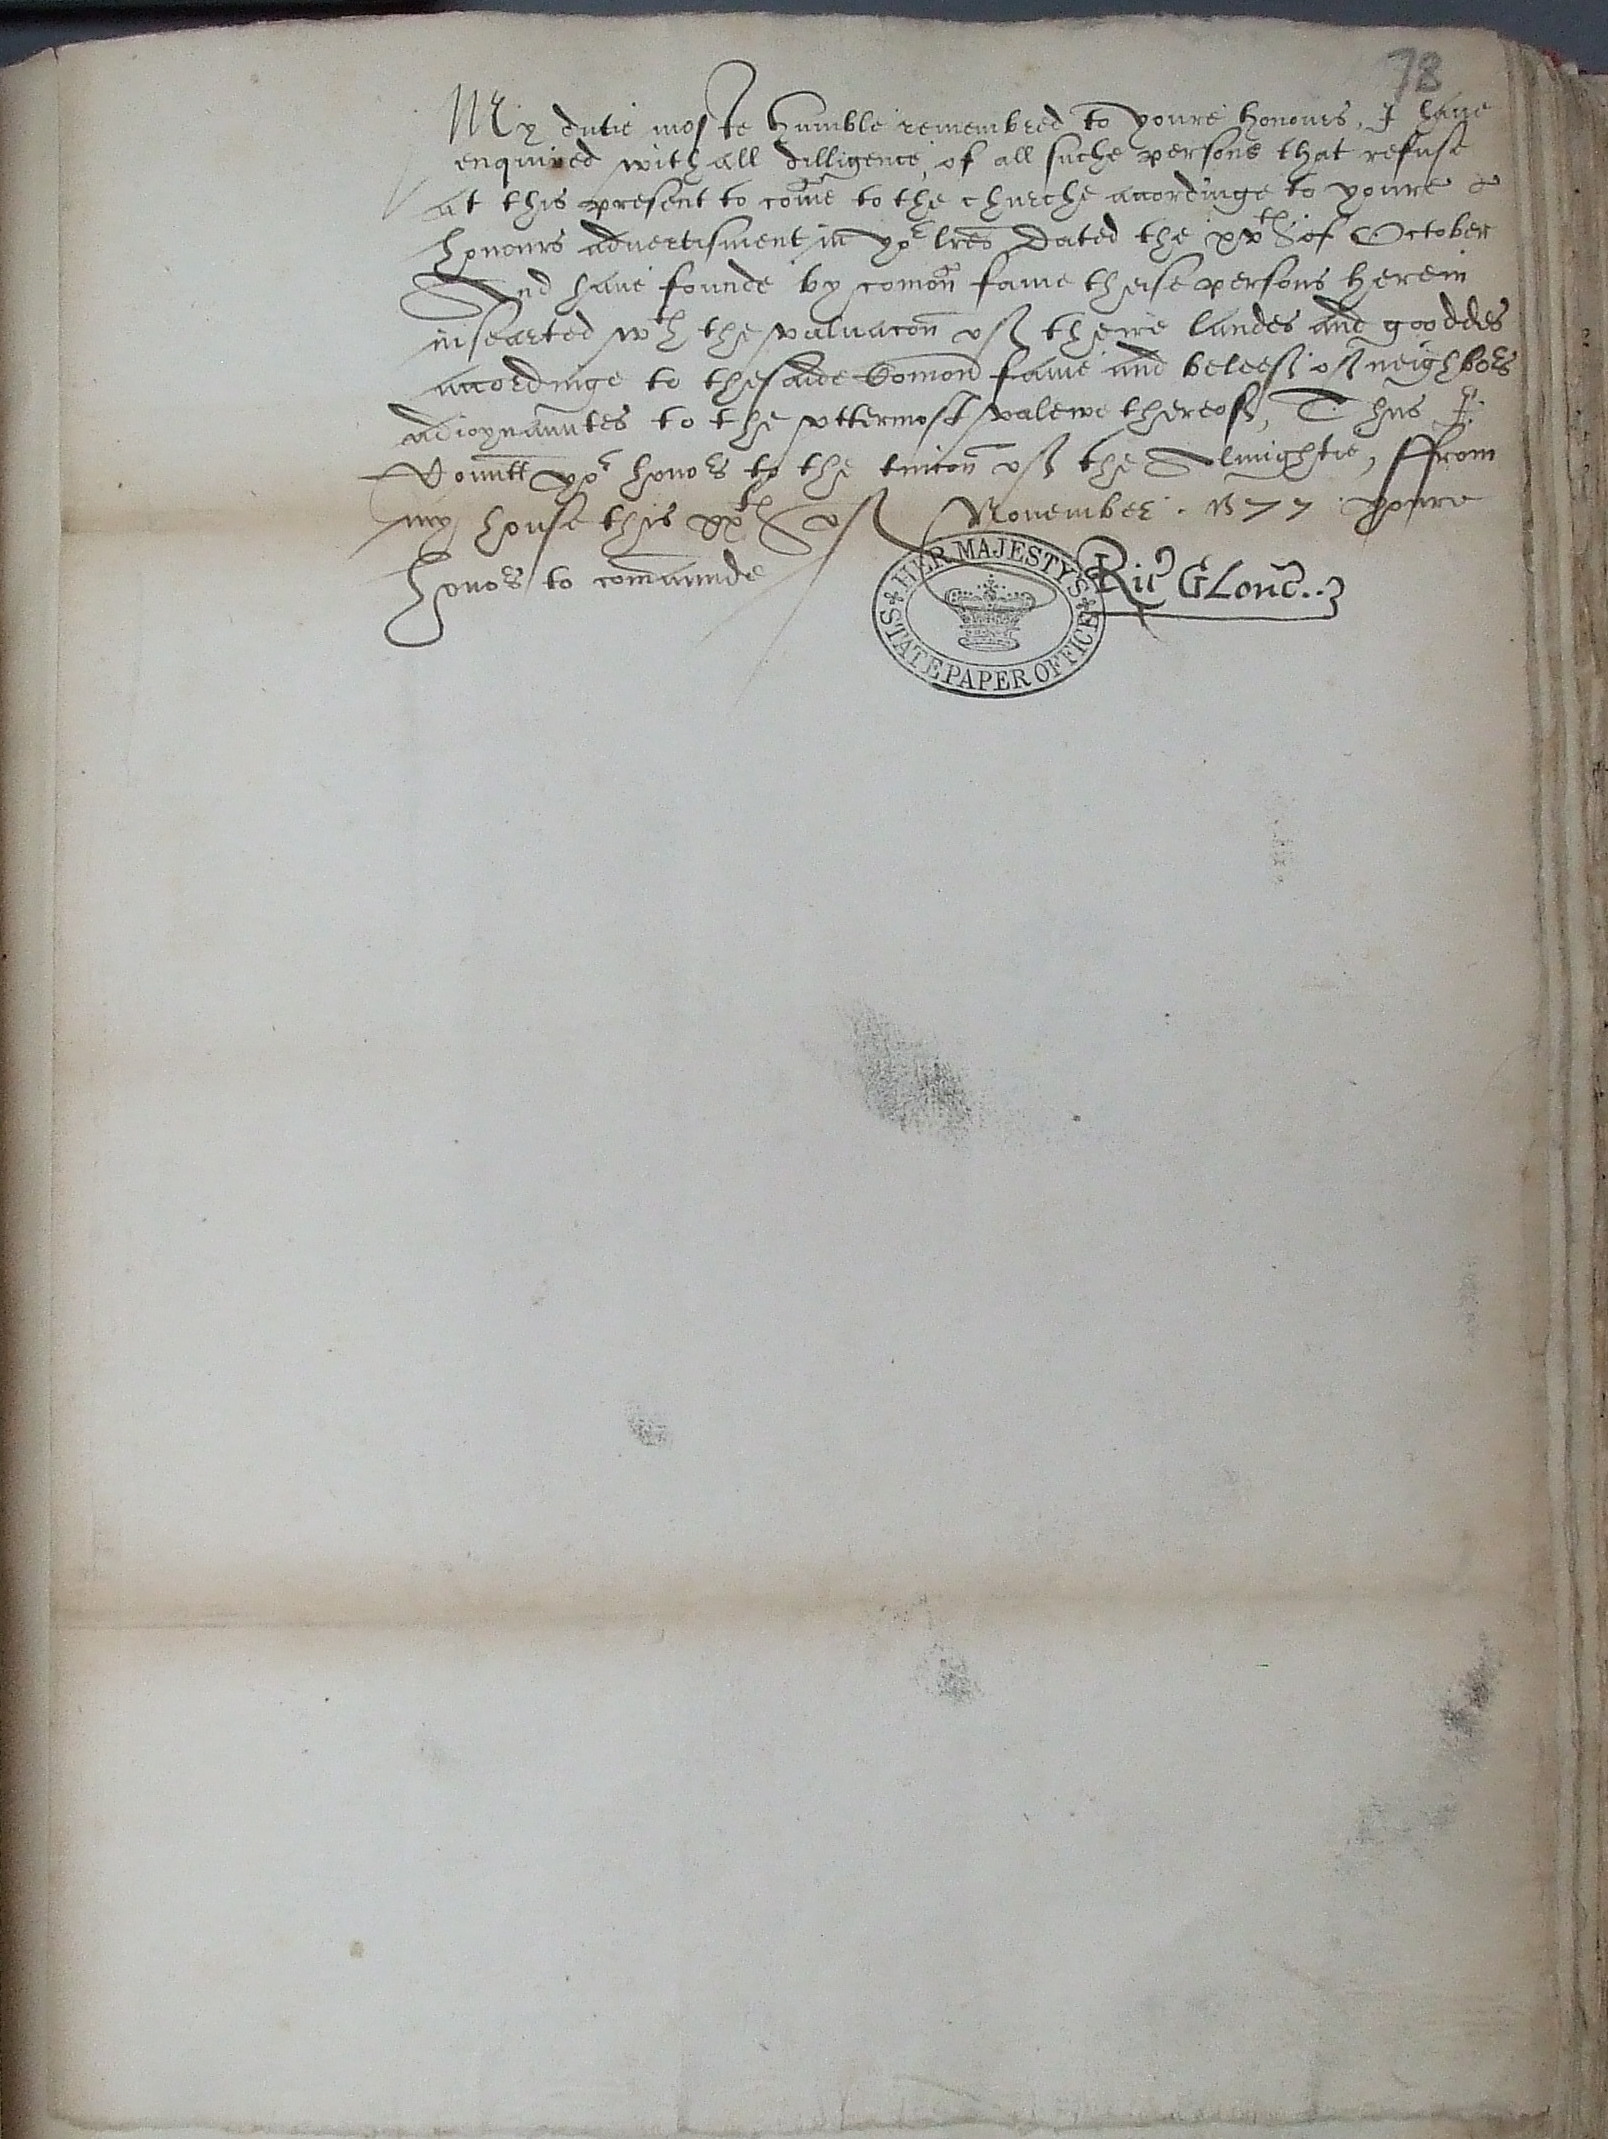 78
My dutie moste humble remembred to youre honours, I haue
enquired with all dilligence, of all suche persons that refuse
at this present to come to the churche accordinge to youre
honours aduertisment in yor lres Dated the xxth of October
And haue founde by comon fame theise persons herein
insearted wth the valuacon of theire landes and gooddes
accordinge to the saide Comon fame and beleef of neighbors
adioynauntes to the vttermost valewe thereof, Thus I
Comitt yor honors to the tuicon of the Almightie, ffrom
my house this xxth of November . 1577 . youre
honors to comaunde
Ric Glouc..
HER MAJESTY'S
STATE PAPER OFFICE